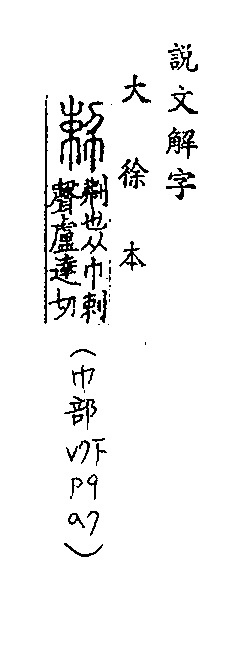 説文解字
大徐本
也从巾剌
聲盧達切
(巾部V7下P9a7)